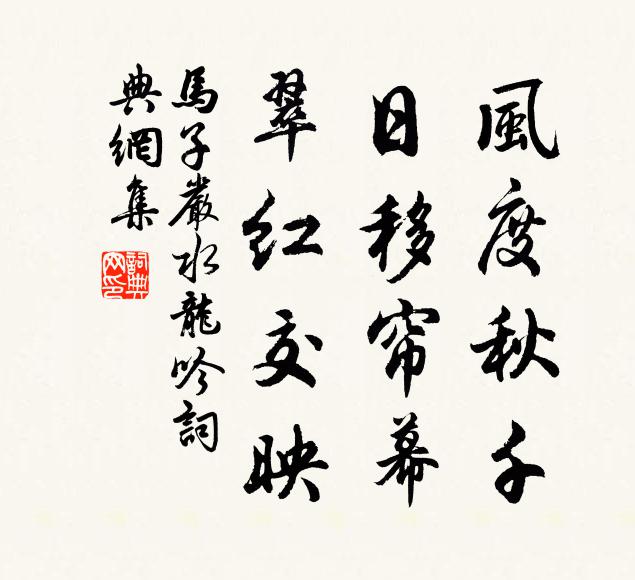 風度秋千
日移帘幕
翠紅交映
馬子嚴水龍吟詞
典網集
詞典網印